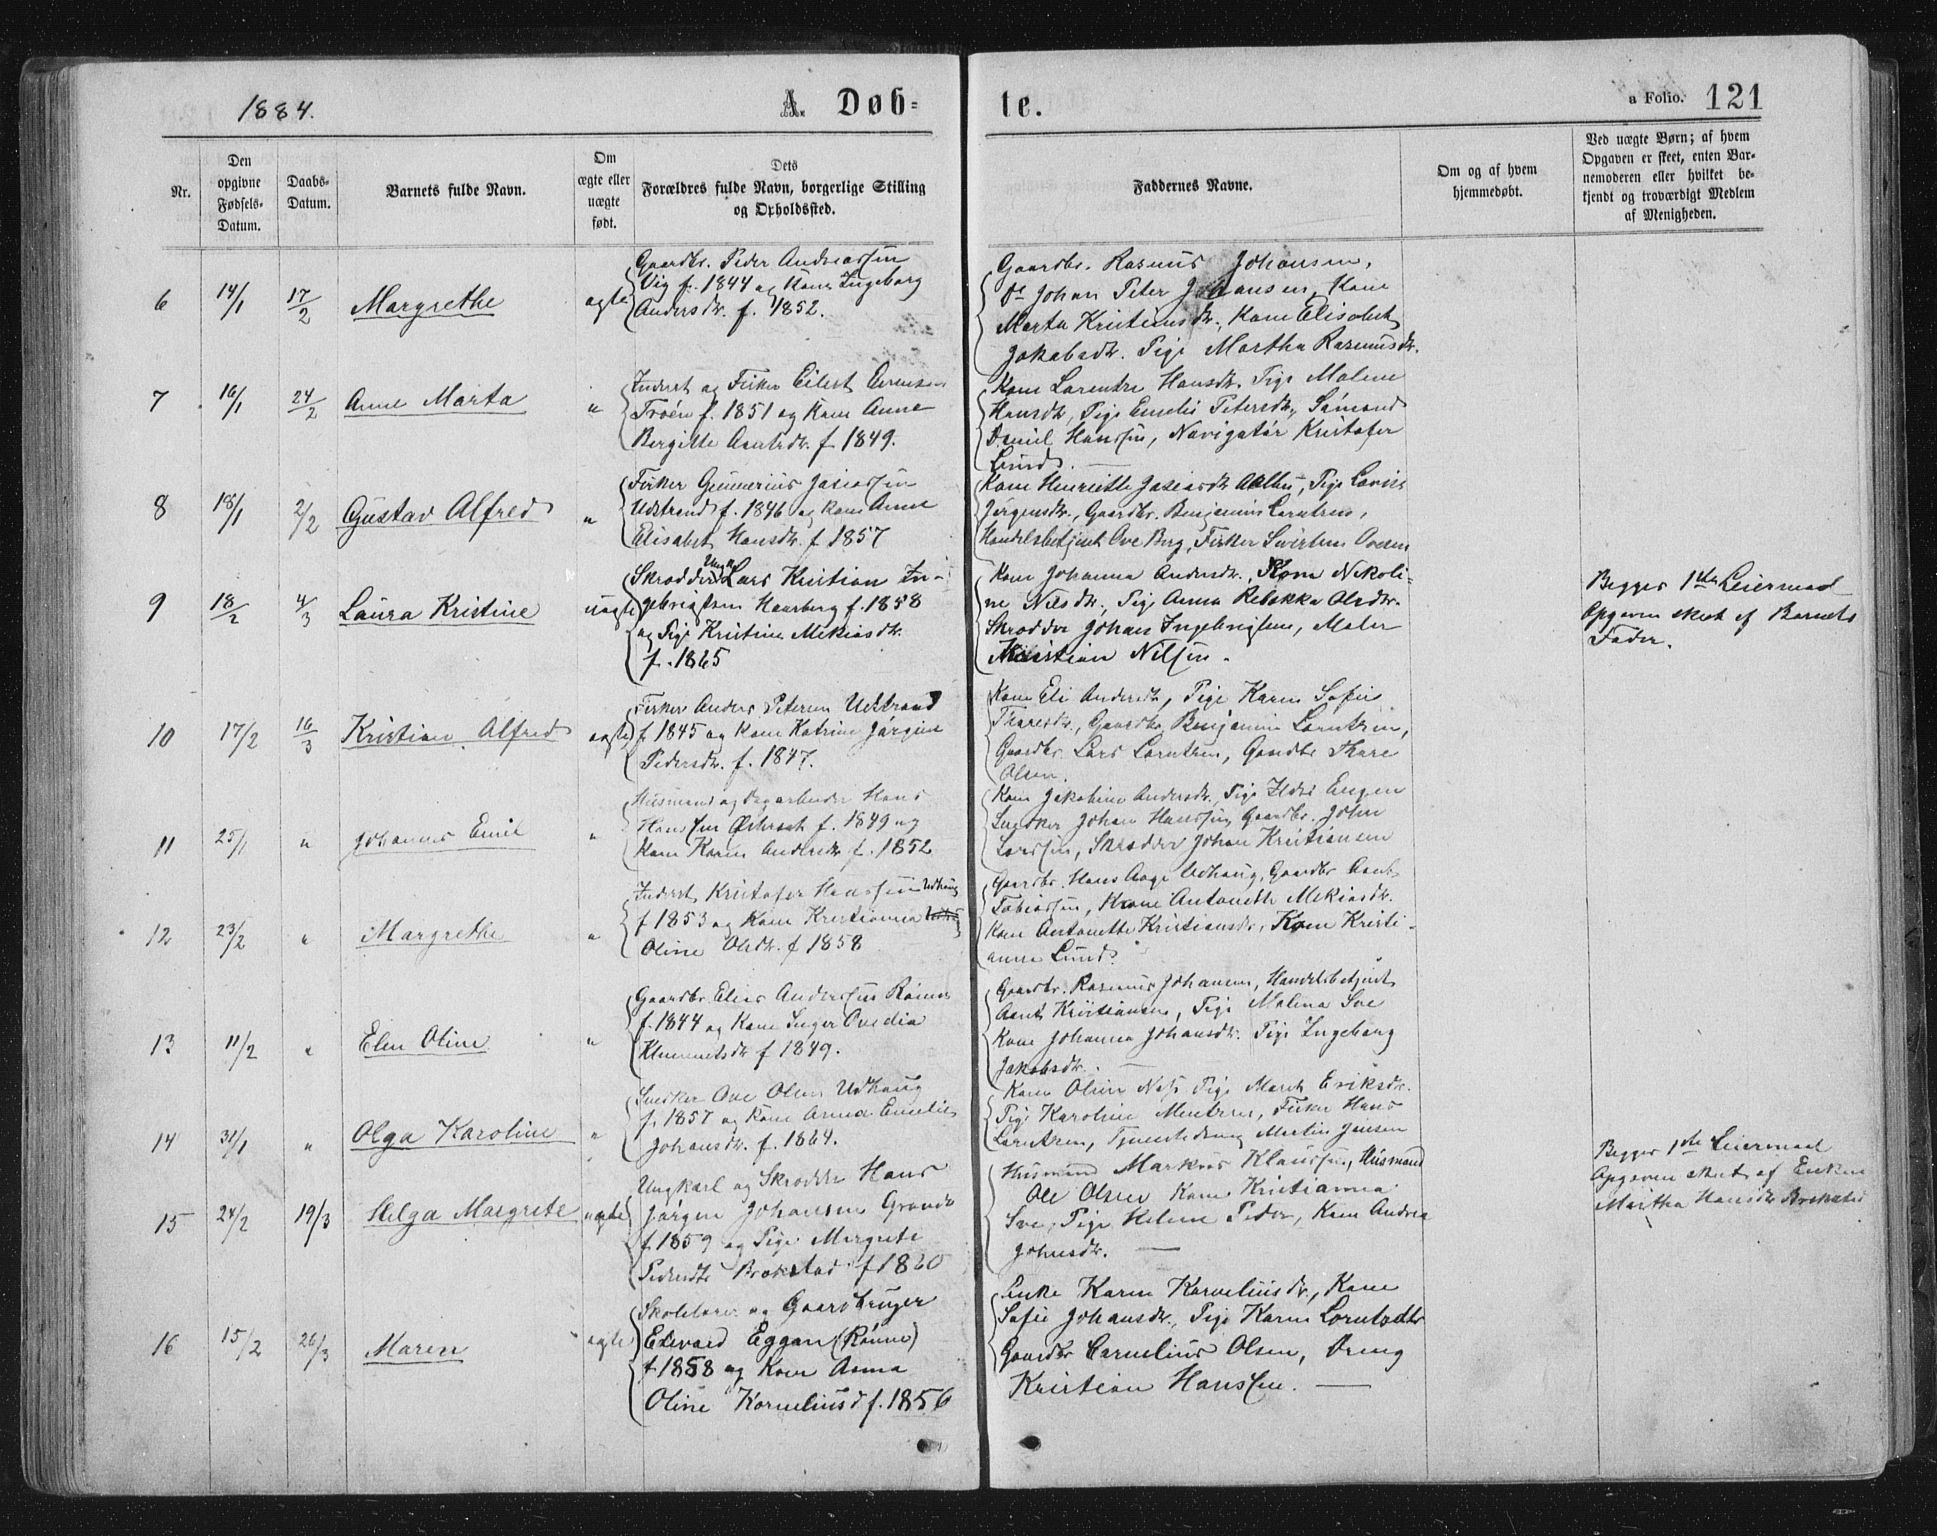 1884.
A. Døb=
te.
a Folio. 121
Nr.
Den opgivne Fødsels-Datum.
Daabs-Datum.
Barnets fulde Navn.
Om ægte eller uægte født.
Dets Forældres fulde Navn, borgerlige Stilling og Opholdssted.
Faddernes Navne.
Om og af hvem hjemmedøbt.
Ved uægte Børn; af hvem Opgaven er skeet, enten Barnemoderen eller hvilket bekjendt og troværdigt Medlem af Menigheden.
6 14/1 17/2 Margrethe ægte
Gaardbr. Peder Andreassen
Vig f. 1844 og Kone Ingeborg
Andersdtr. f. 1852.
Gaardbr. Rasmus Johansen,
Do Johan Peter Johansen, Kone
Marta Kristiansdtr., Kone Elisabet
Jakobsdtr. Pige Martha Rasmusdtr.
7 16/1 24/2 Anne Marta "
Inderst og Fisker Eilert
f. 1851 og Kone Anne
Bergitte f 1849.
Kone Lorentze Hansdtr. Pige Malene
Hansdtr, Pige Emelie Petersdtr, Sømand
Daniel Hanssen, Navigatør Kristofer
Lund.
8 18/1 2/2 Gustav Alfred "
Fisker Gunnerius Josiassen
Udstrand f. 1846 og Kone Anne
Elisabet Hansdtr. f 1857
Kone Henriette Josiasdtr Pige Lovise
Jørgensdtr., Gaardbr. Benjamin Lorntzen,
Handelsbetjent Ove Berg, Fisker Ovesen
9 18/2 4/3 Laura Kristine uægte
Skrædder Ungk Lars Kristian In-
gebrigtsen f. 1858
og Pige Kristine Mekiasdtr.
f. 1865
Kone Johanna Andersdtr., Kone Nikoli-
ne Nilsdtr., Pige Anna Rebekka Olsdtr.
Skrædder Johan Ingebrigtsen, Maler
Kristian Nilsen.
Begges 1ste Leiermaal
Opgaven skeet af Barnets
Fader.
10 17/2 16/3 Kristian Alfred ægte
Fisker Anders Petersen Udstrand
f 1845 og Kone Katrine Jørgine
Pedersdtr. f. 1847.
Kone Eli Andersdtr, Pige Karen Sofie
Tharesdtr., Gaardbr Benjamin Lorntzen,
Gaardbr Lars Lorntzen, Gaardbr Thare
Olsen.
11 25/1 " Johannes Emil "
Husmand og Dagarbeider Hans
Hanssen f. 1849 og
Kone Karen Andersdtr f. 1852
Kone Jakobine Andersdtr., Pige
Snedker Johan Hanssen, Gaardbr. John
Larssen, Skrædder Johan Kristiansen
12 23/2 " Margrethe "
Inderst Kristofer Hanssen Udhaug
f 1853 og Kone Kristianna
Oline Olsdtr. f 1858
Gaardbr. Hans Aage Udhaug, Gaardbr Arnt
Tobiassen, Kone Antonette Mekiasdtr.
Kone Antonette Kristiansdtr., Kone Kristi-
anna Lund.
13 11/2 " Elen Oline "
Gaardbr. Elias Anderssen
f. 1844 og Kone Inger Ovedia
Klemmetsdtr f 1849.
Gaardbr. Rasmus Johansen, Handelsbetjent
Arnt Kristiansen, Pige Malena Sve
Kone Johanna Johansdtr. Pige Ingeborg
Jakobsdtr.
14 31/1 " Olga Karoline "
Snedker Ove Olsen Udhaug
f. 1857 og Kone Anna Emelie
Johansdtr. f. 1864.
Kone Pige Marit Eriksdtr.
Pige Karoline Fisker Hans
Lorntzen, Tjenestedreng Martin Jensen
15 24/2 19/3 Helga Margrete uægte
Ungkarl og Skrædder Hans
Jørgen Johansen Grande
f. 1859 og Pige Margrete
Pedersdtr f 1860
Husmand Markus Klaussen, Husmand
Ole Olsen Kone Kristianna
Sve, Pige Helene Peder, Kone Andrea
Johnsdtr.
Begges 1ste Leiermaal
Opgaven skeet af Enken
Martha Hansdtr
16 15/2 26/3 Maren ægte
Skolelærer og Gaardbruger
Edevard Eggan
f 1858 og Kone Anna
Oline Korneliusd f. 1856
Enke Karen Korneliusdtr., Kone
Sofie Johansdtr., Pige Karen
Gaardbr Cornelius Olsen, Dreng
Kristian Hanssen.